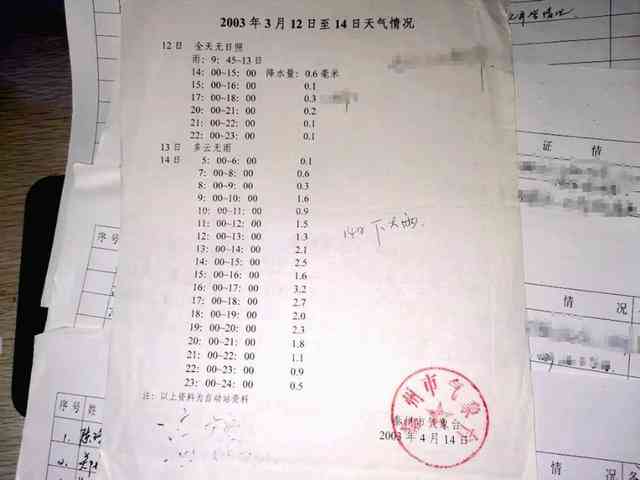 2003 年 3 月 12 日至 14 日天气情况
12 日 全天无日照
雨: 9: 45~13 日
14: 00~15: 00 降水量: 0.6 毫米
15: 00~16: 00 0.1
17: 00~18: 00 0.3
20: 00~21: 00 0.2
21: 00~22: 00 0.1
22: 00~23: 00 0.1
13 日 多云无雨
14 日 5: 00~6: 00 0.1
7: 00~8: 00 0.6
8: 00~9: 00 0.3
9: 00~10: 00 1.6
10: 00~11: 00 0.9
11: 00~12: 00 1.5
12: 00~13: 00 1.3
13: 00~14: 00 2.1
14: 00~15: 00 2.5
15: 00~16: 00 1.6
16: 00~17: 00 3.2
17: 00~18: 00 2.7
18: 00~19: 00 2.0
19: 00~20: 00 2.3
20: 00~21: 00 1.8
21: 00~22: 00 1.1
22: 00~23: 00 0.9
23: 00~24: 00 0.5
注: 以上资料为自动站资料
14日下大雨.
州市气象台
2003 年 4 月 14 日
证 情
情 况
情 况
序号
序号 姓
1. 陈
2.